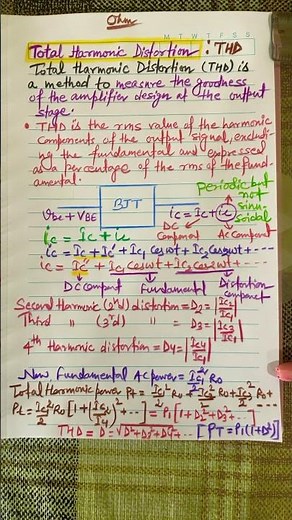 Ohm
M T W T F S S
Total Harmonic Distortion : THD
Total Harmonic Distortion (THD) is
a method to measure the goodness
of the amplifier design at the output
stage.
• THD is the rms value of the harmonic
components of the output signal, excludi-
ng the fundamental and expressed
as a percentage of the rms of the fund-
amental.
Periodic but
not
sinu-
soidal
BJT
Vbe + VBE
ic = Ic + ic
DC Component
AC Component
ic = Ic + ic
ic = Ic + Ic' + Ic1 cosωt + Ic2 cos2ωt + ----
ic = Ic'' + Ic1 cosωt + Ic2 cos2ωt + ----
DC Compant Fundamental Distortion compant
Second Harmonic (2nd) distortion = D2 = |Ic2/Ic1|
Third " (3rd) " = D3 = |Ic3/Ic1|
4th Harmonic distortion = D4 = |Ic4/Ic1|
Now Fundamental AC power = Ic1²/2 Ro
Total Harmonic power Pt = Ic1²/2 Ro + Ic2²/2 Ro + Ic3²/2 Ro + ..
Pt = Ic1²/2 Ro [1 + (Ic2/Ic1)² + ···] = P1 [1 + D2² + D3² + ···]
THD = D = √D2² + D3² + D4² + ··· [PT = P1 (1 + D²)]